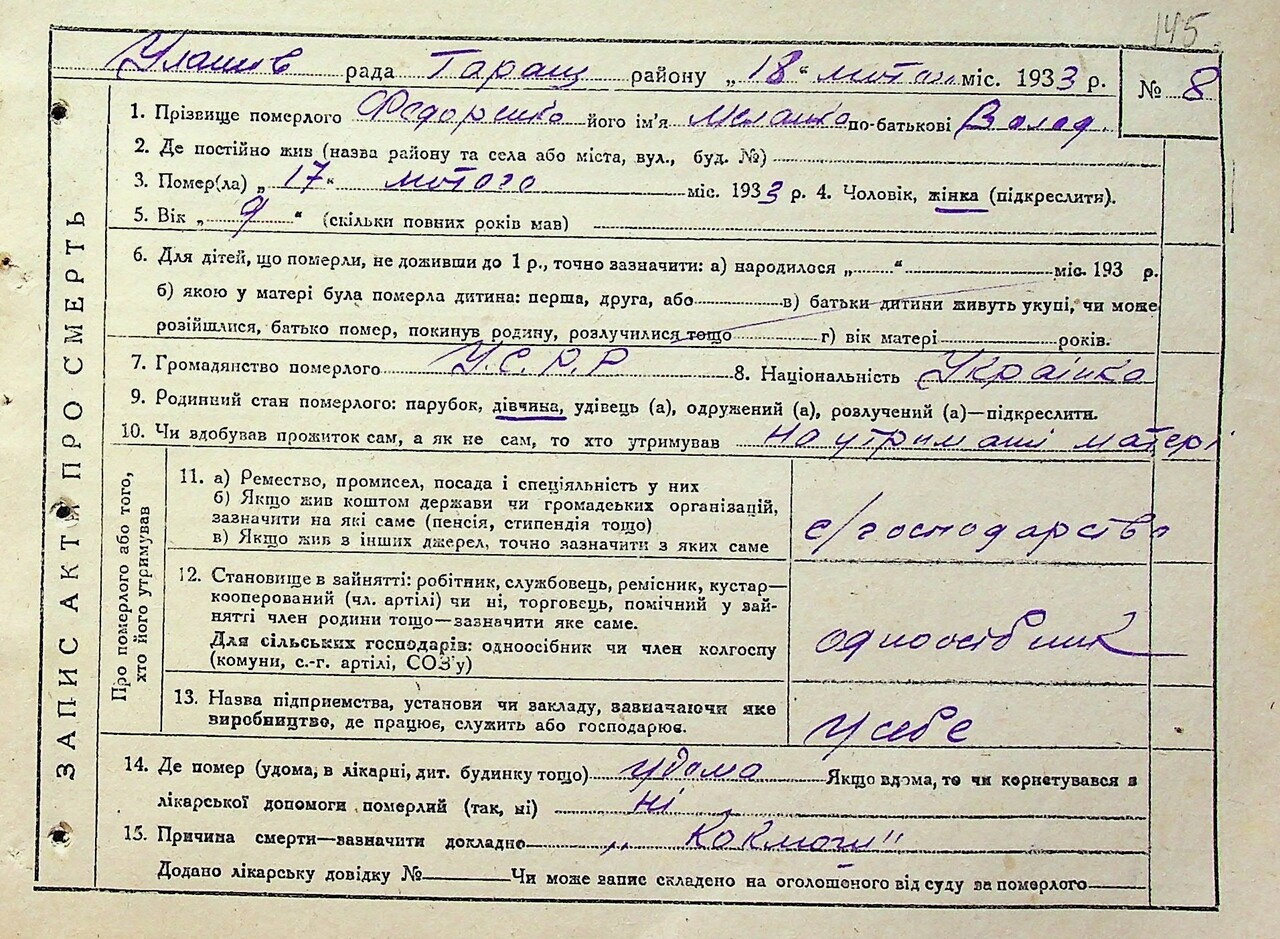 145
Улашів рада Таращ району „18“ лютого міс. 1933 р. № 8
1. Прізвище померлого Федоренко його ім'я Меланка по-батькові Волод.
2. Де постійно жив (назва району та села або міста, вул., буд. №)
3. Помер(ла) „17“ лютого міс. 1933 р. 4. Чоловік, жінка (підкреслити).
5. Вік „9“ (скільки повних років мав)
6. Для дітей, що померли, не доживши до 1 р., точно зазначити: а) народилося „ “ міс. 193 р.
б) якою у матері була померла дитина: перша, друга, або в) батьки дитини живуть укупі, чи може
розійшлися, батько помер, покинув родину, розлучилися тощо г) вік матері років.
7. Громадянство померлого У.С.Р.Р 8. Національність Українка
9. Родинний стан померлого: парубок, дівчина, удівець (а), одружений (а), розлучений (а)—підкреслити.
10. Чи здобував прожиток сам, а як не сам, то хто утримував на утримані матері
ЗАПИС АКТІВ ПРО СМЕРТЬ
Про померлого або того,
хто його утримував
11. а) Ремество, промисел, посада і спеціяльність у них
б) Якщо жив коштом держави чи громадських організацій,
зазначити на які саме (пенсія, стипендія тощо)
в) Якщо жив з інших джерел, точно зазначити з яких саме
с/господарство
12. Становище в зайнятті: робітник, службовець, ремісник, кустар—
кооперований (чл. артілі) чи ні, торговець, помічний у зай-
нятті член родини тощо—зазначити яке саме.
Для сільських господарів: одноосібник чи член колгоспу
(комуни, с.-г. артілі, СОЗ'у)
одноосібник
13. Назва підприємства, установи чи закладу, зазначаючи яке
виробництво, де працює, служить або господарює.
у себе
14. Де помер (удома, в лікарні, дит. будинку тощо) удома Якщо вдома, то чи користувався з
лікарської допомоги померлий (так, ні) ні
15. Причина смерти—зазначити докладно
Додано лікарську довідку № Чи може запис складено на оголошеного від суду за померлого